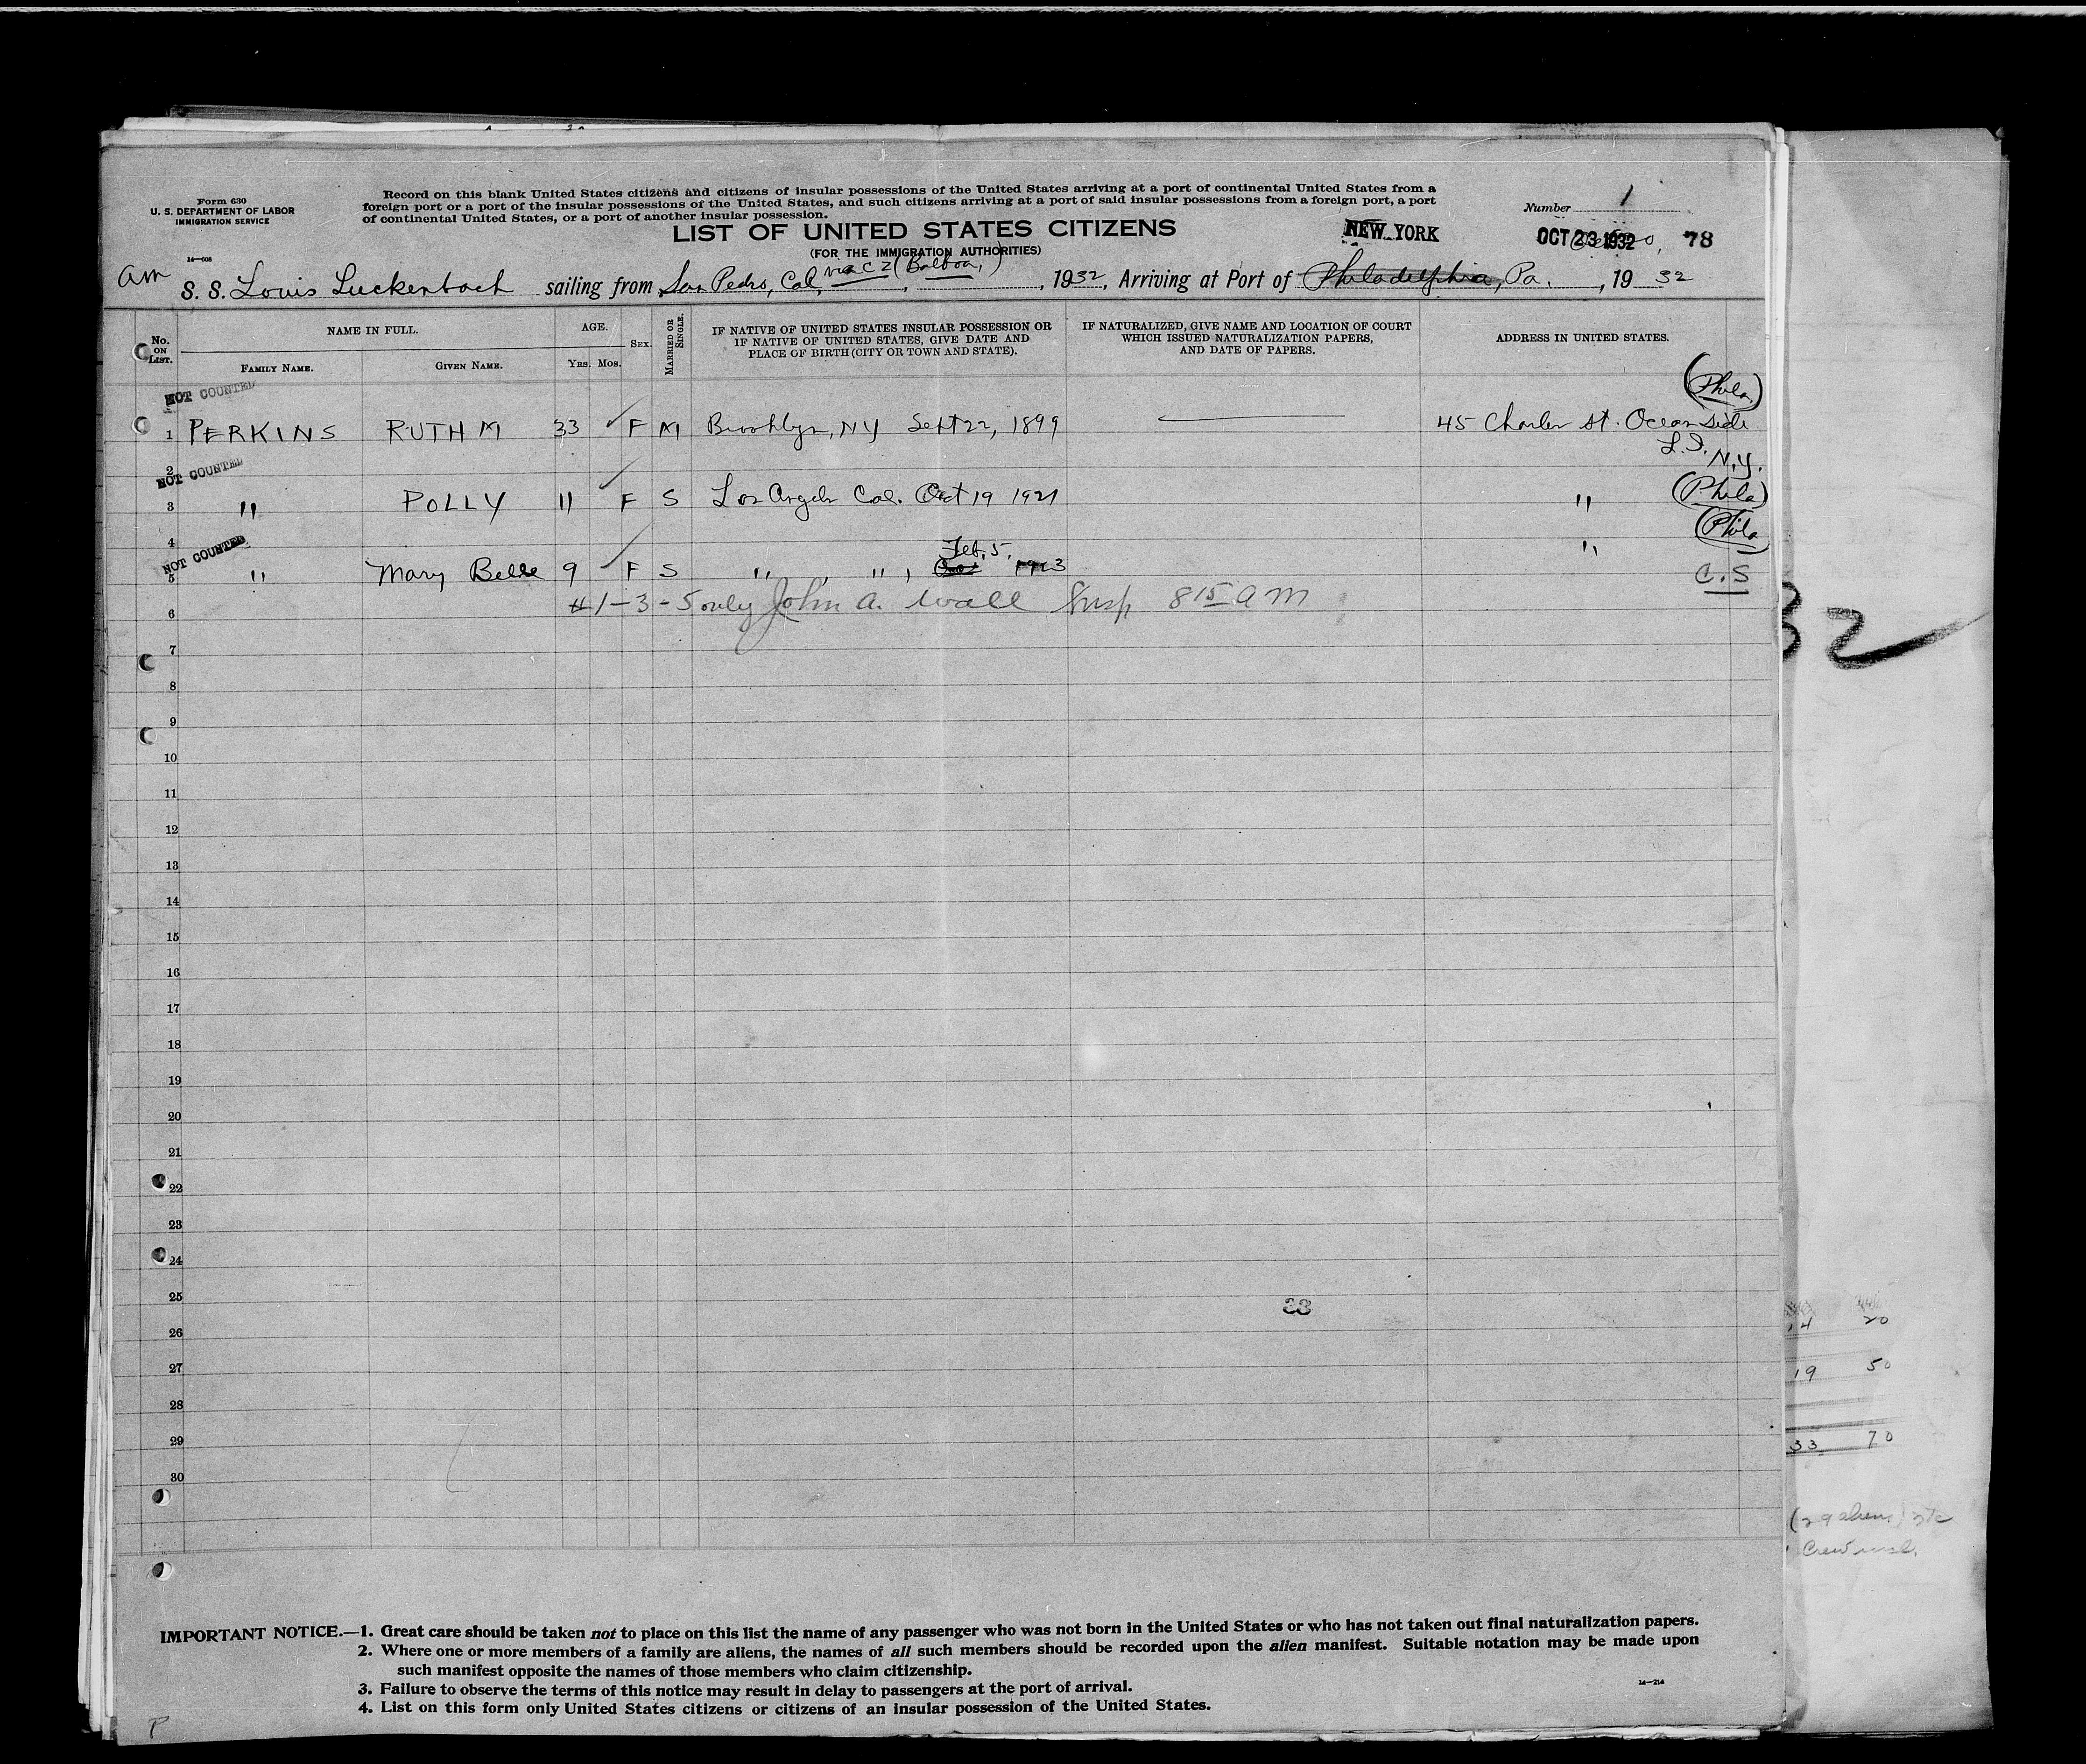 Form 630
U. S. DEPARTMENT OF LABOR
IMMIGRATION SERVICE
14—608
Record on this blank United States citizens and citizens of insular possessions of the United States arriving at a port of continental United States from a
foreign port or a port of the insular possessions of the United States, and such citizens arriving at a port of said insular possessions from a foreign port, a port
of continental United States, or a port of another insular possession.
Number 1
LIST OF UNITED STATES CITIZENS
(FOR THE IMMIGRATION AUTHORITIES)
NEW YORK
OCT 23 1932
78
Am S. S. Louis Luckenbach sailing from San Pedro, Cal, via C Z (Balboa,) , 1932, Arriving at Port of Philadelphia, Pa. , 19 32
No. ON LIST.
NAME IN FULL.
FAMILY NAME.
GIVEN NAME.
AGE.
YRS. MOS.
SEX.
MARRIED OR SINGLE.
IF NATIVE OF UNITED STATES INSULAR POSSESSION OR
IF NATIVE OF UNITED STATES, GIVE DATE AND
PLACE OF BIRTH (CITY OR TOWN AND STATE).
IF NATURALIZED, GIVE NAME AND LOCATION OF COURT
WHICH ISSUED NATURALIZATION PAPERS,
AND DATE OF PAPERS.
ADDRESS IN UNITED STATES.
NOT COUNTED
(Phila.)
1 PERKINS RUTH M 33 F M Brooklyn, NY Sept 22, 1899 45 Charles St. Ocean Side
L.I. N.Y.
2
NOT COUNTED
3 " POLLY 11 F S Los Angeles Cal. Oct 19 1921 " (Phila)
4
NOT COUNTED
Feb. 5,
" (Phila)
5 " Mary Belle 9 F S " " , 1923
C.S
#1-3-5 only John A. Wall Insp 8 15 a m
6
7
8
9
10
11
12
13
14
15
16
17
18
19
20
21
22
23
24
25
26
27
28
29
30
32
14 20
19 50
33 70
IMPORTANT NOTICE.—1. Great care should be taken not to place on this list the name of any passenger who was not born in the United States or who has not taken out final naturalization papers.
2. Where one or more members of a family are aliens, the names of all such members should be recorded upon the alien manifest. Suitable notation may be made upon
such manifest opposite the names of those members who claim citizenship.
3. Failure to observe the terms of this notice may result in delay to passengers at the port of arrival.
4. List on this form only United States citizens or citizens of an insular possession of the United States.
14—214
P